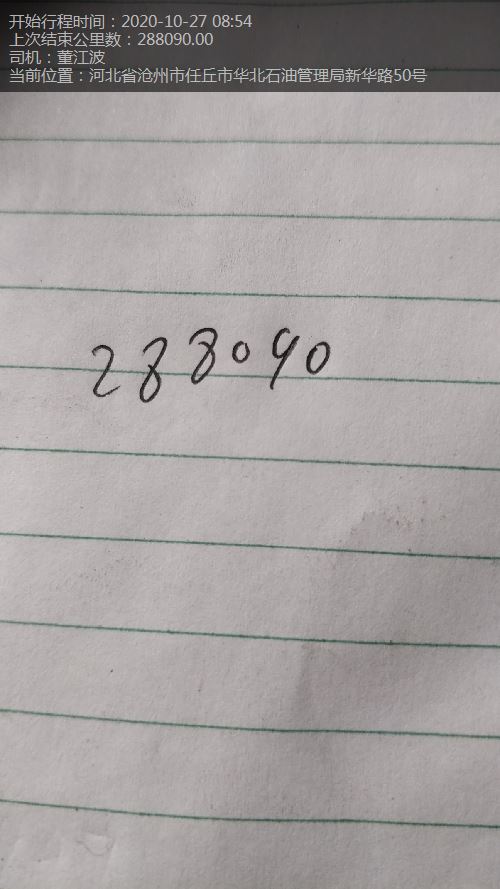 开始行程时间：2020-10-27 08:54
上次结束公里数：288090.00
司机：董江波
当前位置：河北省沧州市任丘市华北石油管理局新华路50号
288090